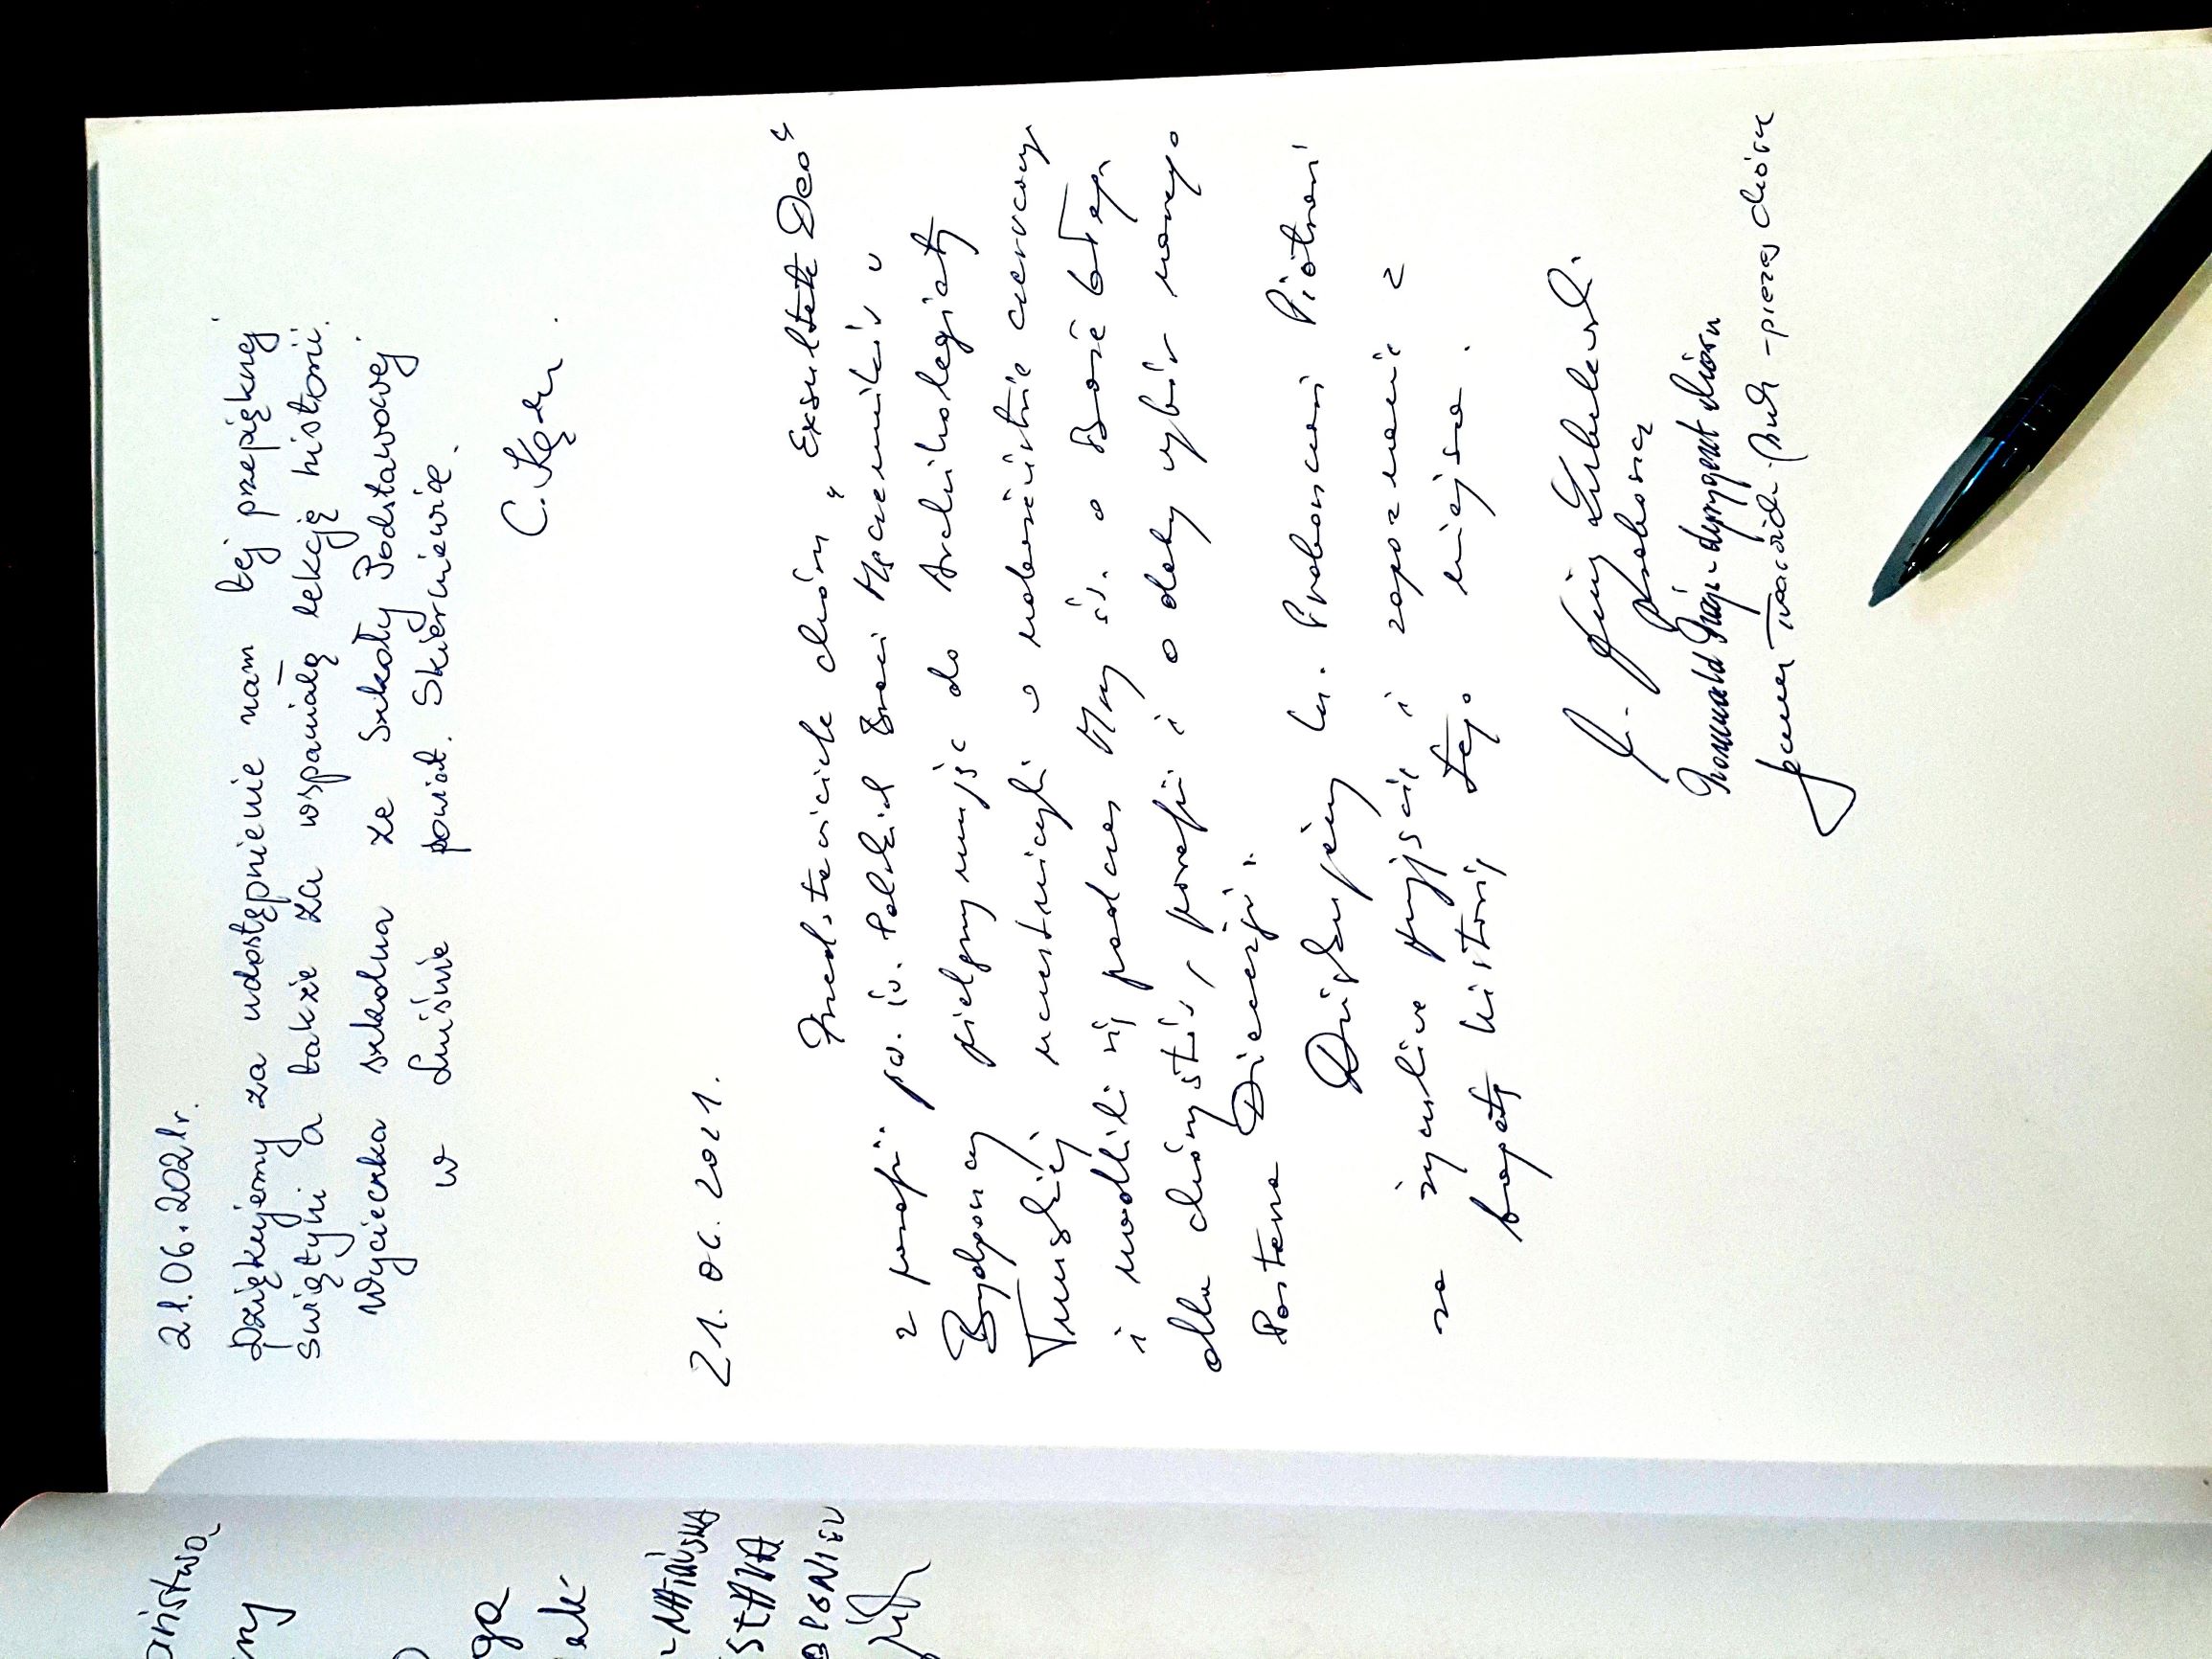 21.06.2021r.
Dziękujemy za udostępnienie nam tej przepięknej
świątyni a także za wspaniałą lekcję historii.
Wycieczka szkolna ze Szkoły Podstawowej
w powiat. Skierniewice.
21.06.2021.
Przedstawiciele chóru „Exsultate Deo"
z parafii pw. św. Polskich Braci Męczenników w
Bydgoszczy pielgrzymując do Archikolegiaty
Tumskiej uczestniczyli w nabożeństwie czerwcowym
i modlili się podczas Mszy św. o Boże błog.
dla chórzystów, parafii i o dobry wybór nowego
Pasterza Diecezji.
Dziękujemy ks. Proboszczowi Piotrowi
za życzliwe przyjęcie i zapoznanie z
bogatą historią tego miejsca.
Romuald - dyrygent chóru
- prezes chóru
aństwa
ny
ga